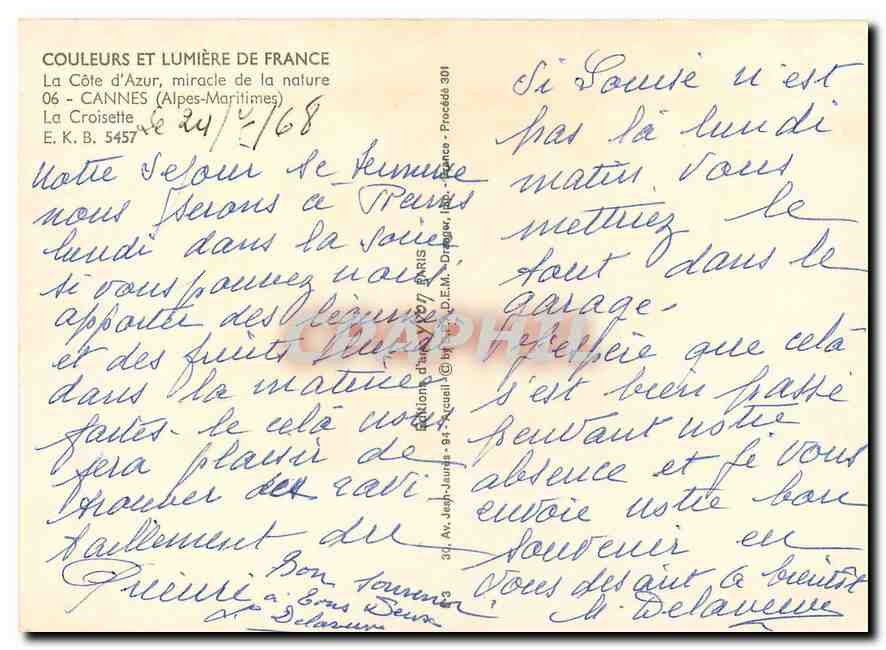 COULEURS ET LUMIÈRE DE FRANCE
La Côte d'Azur, miracle de la nature
06 - CANNES (Alpes-Maritimes)
La Croisette
E. K. B. 5457
Le 24/ /68
Notre Sejour se termine
nous serons à
lundi dans la soirée
si vous pouvez nous
apporter des légumes
et des fruits lundi
dans la matinée
faites-le celà nous
sera plaisir de
trouver des ravi-
taillement du
Prieuré
Bon souvenir
à tous Deux
Delaveuve
Editions d'art yvon PARIS
30, Av. Jean-Jaurès - 94 - Arcueil - © by S.P.A.D.E.M. - Draeger, Imp. - France - Procédé 301
Si Louise n'est
pas là lundi
matin vous
mettriez le
tout dans le
garage.
J'espère que celà
s'est bien passé
pendant notre
absence et je vous
envoie notre bon
souvenir en
vous disant à bientôt
M. Delaveuve
CPAPHIL